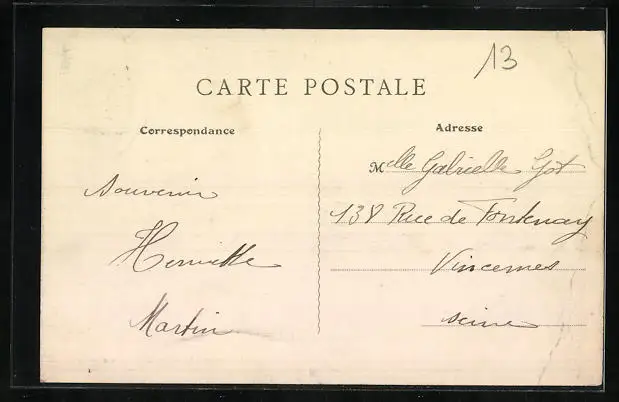 13
CARTE POSTALE
Correspondance
Adresse
Souvenir
Henriette
Martin
Melle Gabrielle Got
138 Rue de Fontenay
Vincennes
Seine